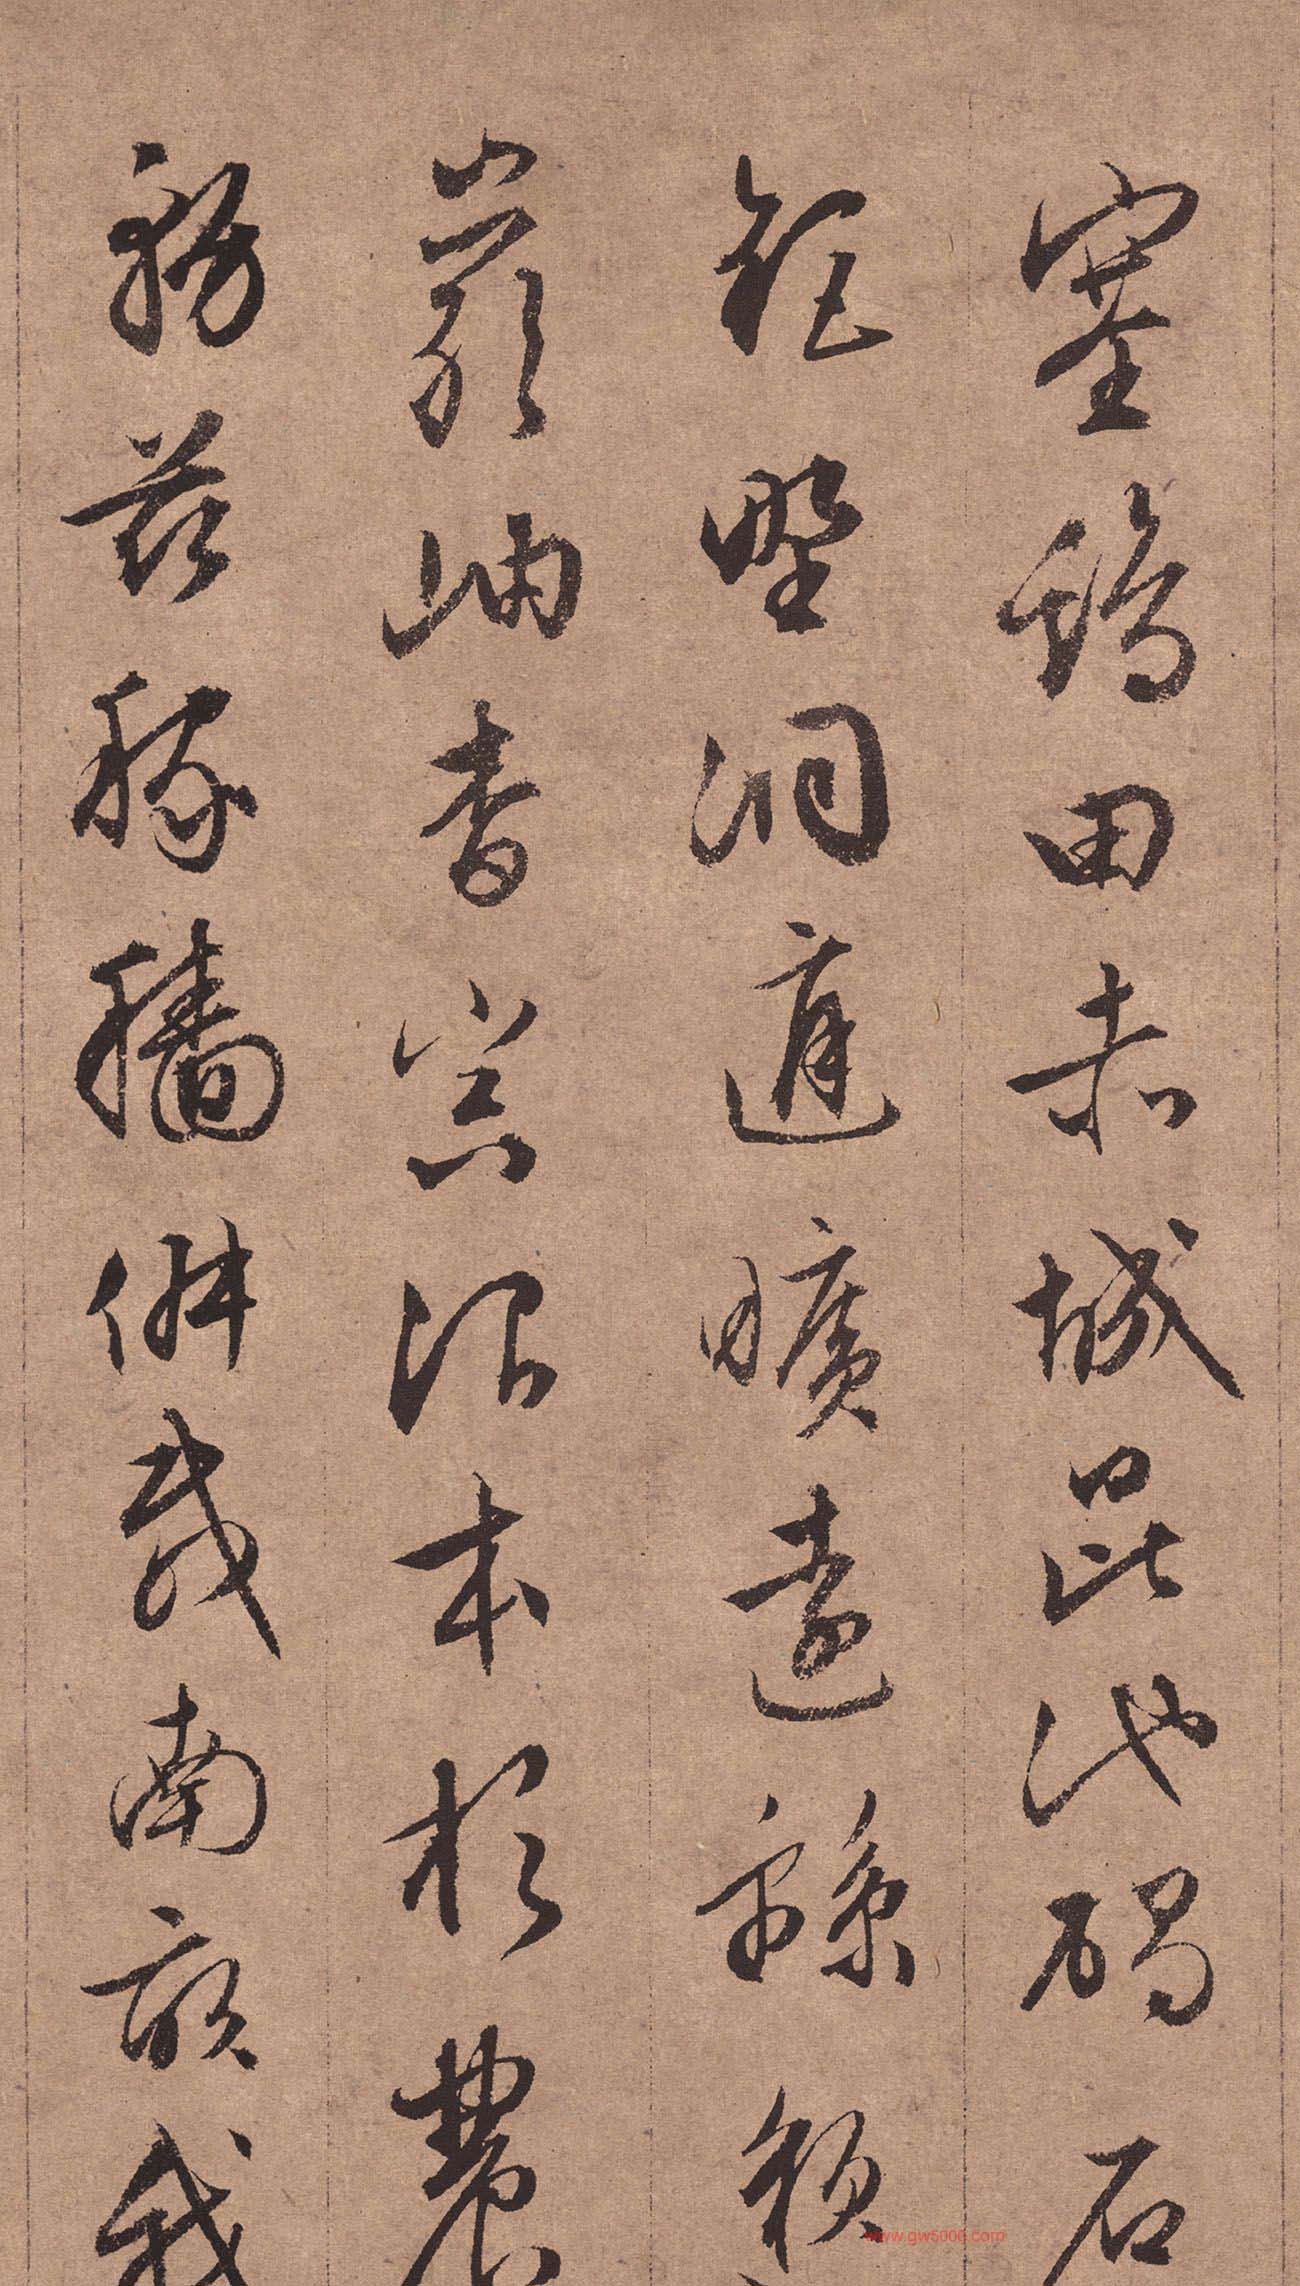 塞鷄田赤城昆池碣石
鉅野洞庭曠遠緜邈
巖岫杳冥治本於農
務茲稼穡俶載南畝我
www.gw5000.com